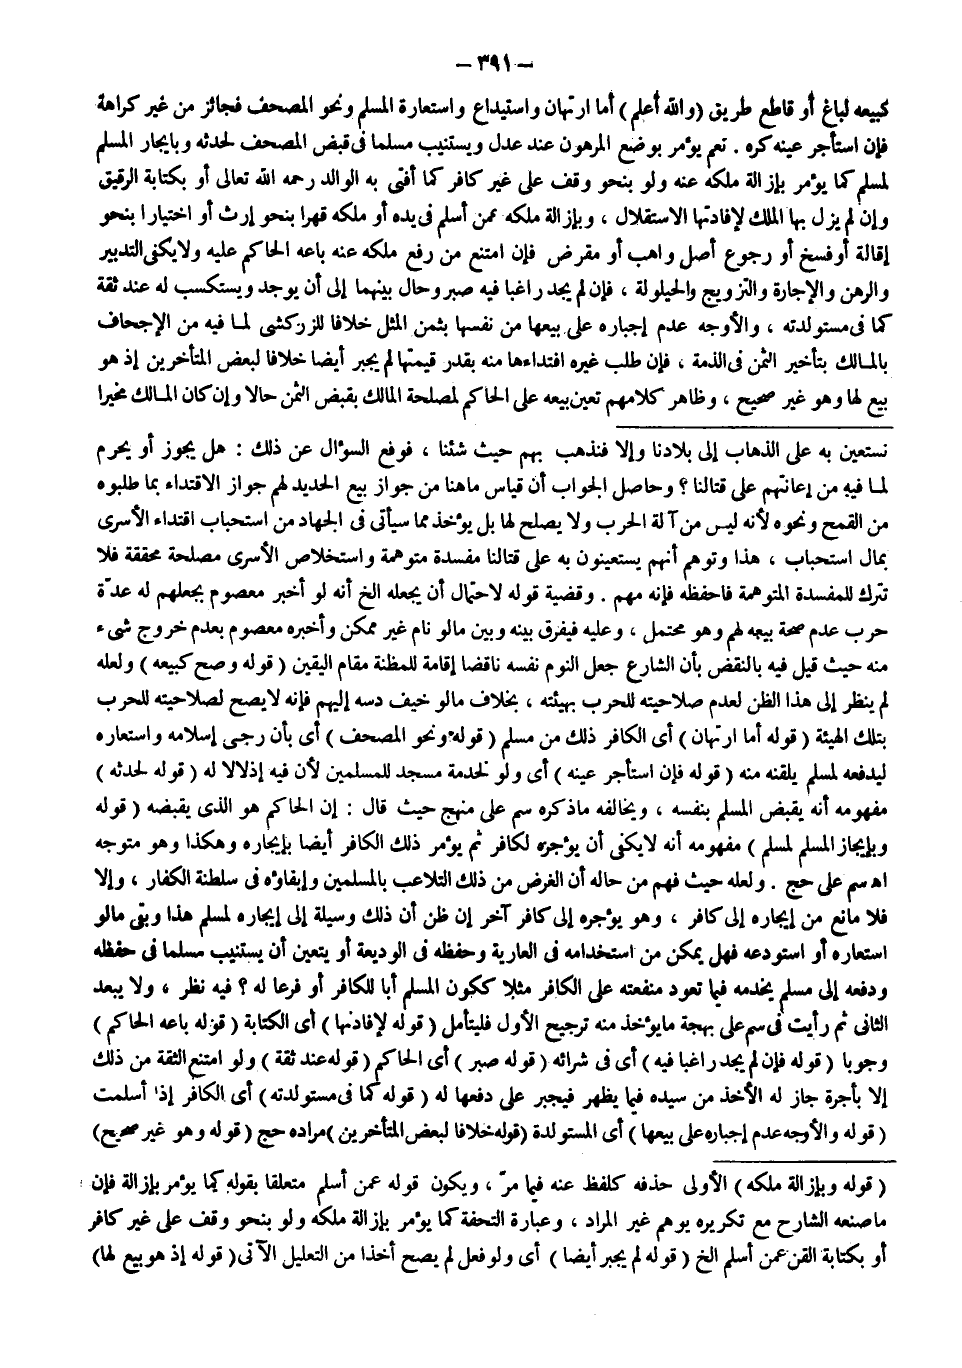 — ٣٩١ —
كبيعه لباغ أو قاطع طريق (والله أعلم) أما ارتهان واستيداع واستعارة المسلم ونحو المصحف فجائز من غير كراهة
فإن استأجر عينه كره . نعم يؤمر بوضع المرهون عند عدل ويستنيب مسلما فى قبض المصحف لحدثه وبايجار المسلم
لمسلم كما يؤمر بإزالة ملكه عنه ولو بنحو وقف على غير كافر كما أفتى به الوالد رحمه الله تعالى أو بكتابة الرقيق
وإن لم يزل بها الملك لإفادتها الاستقلال ، وبإزالة ملكه عمن أسلم فى يده أو ملكه قهرا بنحو إرث أو اختيارا بنحو
إقالة أو فسخ أو رجوع أصل واهب أو مقرض فإن امتنع من رفع ملكه عنه باعه الحاكم عليه ولا يكفى التدبير
والرهن والإجارة والتزويج والحيلولة ، فإن لم يجد راغبا فيه صبر وحال بينهما إلى أن يوجد ويستكسب له عند ثقة
كما فى مستولدته ، والأوجه عدم إجباره على بيعها من نفسها بثمن المثل خلافا للزركشى لما فيه من الإجحاف
بالمالك بتأخير الثمن فى الذمة ، فإن طلب غيره افتداءها منه بقدر قيمتها لم يجبر أيضا خلافا لبعض المتأخرين إذ هو
بيع لها وهو غير صحيح ، وظاهر كلامهم تعين بيعه على الحاكم لمصلحة المالك بقبض الثمن حالا وإن كان المالك مخيرا
نستعين به على الذهاب إلى بلادنا وإلا فنذهب بهم حيث شئنا ، فوقع السؤال عن ذلك : هل يجوز أو يحرم
لما فيه من إعانتهم على قتالنا ؟ وحاصل الجواب أن قياس ماهنا من جواز بيع الحديد لهم جواز الاقتداء بما طلبوه
من القمح ونحوه لأنه ليس من آلة الحرب ولا يصلح لها بل يؤخذ مما سيأتى فى الجهاد من استحباب اقتداء الأسرى
بمال استحباب ، هذا وتوهم أنهم يستعينون به على قتالنا مفسدة متوهمة واستخلاص الأسرى مصلحة محققة فلا
تترك للمفسدة المتوهمة فاحفظه فإنه مهم . وقضية قوله لاحتمال أن يجعله الخ أنه لو أخبر معصوم بجعلهم له عدّة
حرب عدم صحة بيعه لهم وهو محتمل ، وعليه فيفرق بينه وبين مالو نام غير ممكن وأخبره معصوم بعدم خروج شىء
منه حيث قيل فيه بالنقض بأن الشارع جعل النوم نفسه ناقضا إقامة للمظنة مقام اليقين ( قوله وصح كبيعه ) ولعله
لم ينظر إلى هذا الظن لعدم صلاحيته للحرب بهيئته ، بخلاف مالو خيف دسه إليهم فإنه لايصح لصلاحيته للحرب
بتلك الهيئة ( قوله أما ارتهان ) أى الكافر ذلك من مسلم ( قوله ونحو المصحف ) أى بأن رجى إسلامه واستعاره
ليدفعه لمسلم يلقنه منه ( قوله فإن استأجر عينه ) أى ولو لخدمة مسجد للمسلمين لأن فيه إذلالا له ( قوله لحدثه )
مفهومه أنه يقبض المسلم بنفسه ، ويخالفه ماذكره سم على منهج حيث قال : إن الحاكم هو الذى يقبضه ( قوله
وبإيجاز المسلم لمسلم ) مفهومه أنه لايكفى أن يؤجره لكافر ثم يؤمر ذلك الكافر أيضا بإيجاره وهكذا وهو متوجه
اه سم على حج . ولعله حيث فهم من حاله أن الغرض من ذلك التلاعب بالمسلمين وإبقاؤه فى سلطنة الكفار ، وإلا
فلا مانع من إيجاره إلى كافر ، وهو يؤجره إلى كافر آخر إن ظن أن ذلك وسيلة إلى إيجاره لمسلم هذا وبقى مالو
استعاره أو استودعه فهل يمكن من استخدامه فى العارية وحفظه فى الوديعة أو يتعين أن يستنيب مسلما فى حفظه
ودفعه إلى مسلم يخدمه فيما تعود منفعته على الكافر مثلا ككون المسلم أبا للكافر أو فرعا له ؟ فيه نظر ، ولا يبعد
الثانى ثم رأيت فى سم على بهجة مايؤخذ منه ترجيح الأول فليتأمل ( قوله لإفادتها ) أى الكتابة ( قوله باعه الحاكم )
وجوبا ( قوله فإن لم يجد راغبا فيه ) أى فى شرائه ( قوله صبر ) أى الحاكم ( قوله عند ثقة ) ولو امتنع الثقة من ذلك
إلا بأجرة جاز له الأخذ من سيده فيما يظهر فيجبر على دفعها له ( قوله كما فى مستولدته ) أى الكافر إذا أسلمت
( قوله والأوجه عدم إجباره على بيعها ) أى المستولدة (قوله خلافا لبعض المتأخرين ) مراده حج ( قوله وهو غير صحيح )
( قوله وبإزالة ملكه ) الأولى حذفه كلفظ عنه فيما مرّ ، ويكون قوله عمن أسلم متعلقا بقوله كما يؤمر بإزالة فإن
ماصنعه الشارح مع تكريره يوهم غير المراد ، وعبارة التحفة كما يؤمر بإزالة ملكه ولو بنحو وقف على غير كافر
أو بكتابة القن عمن أسلم الخ ( قوله لم يجبر أيضا ) أى ولو فعل لم يصح أخذا من التعليل الآتى ( قوله إذ هو بيع لها )